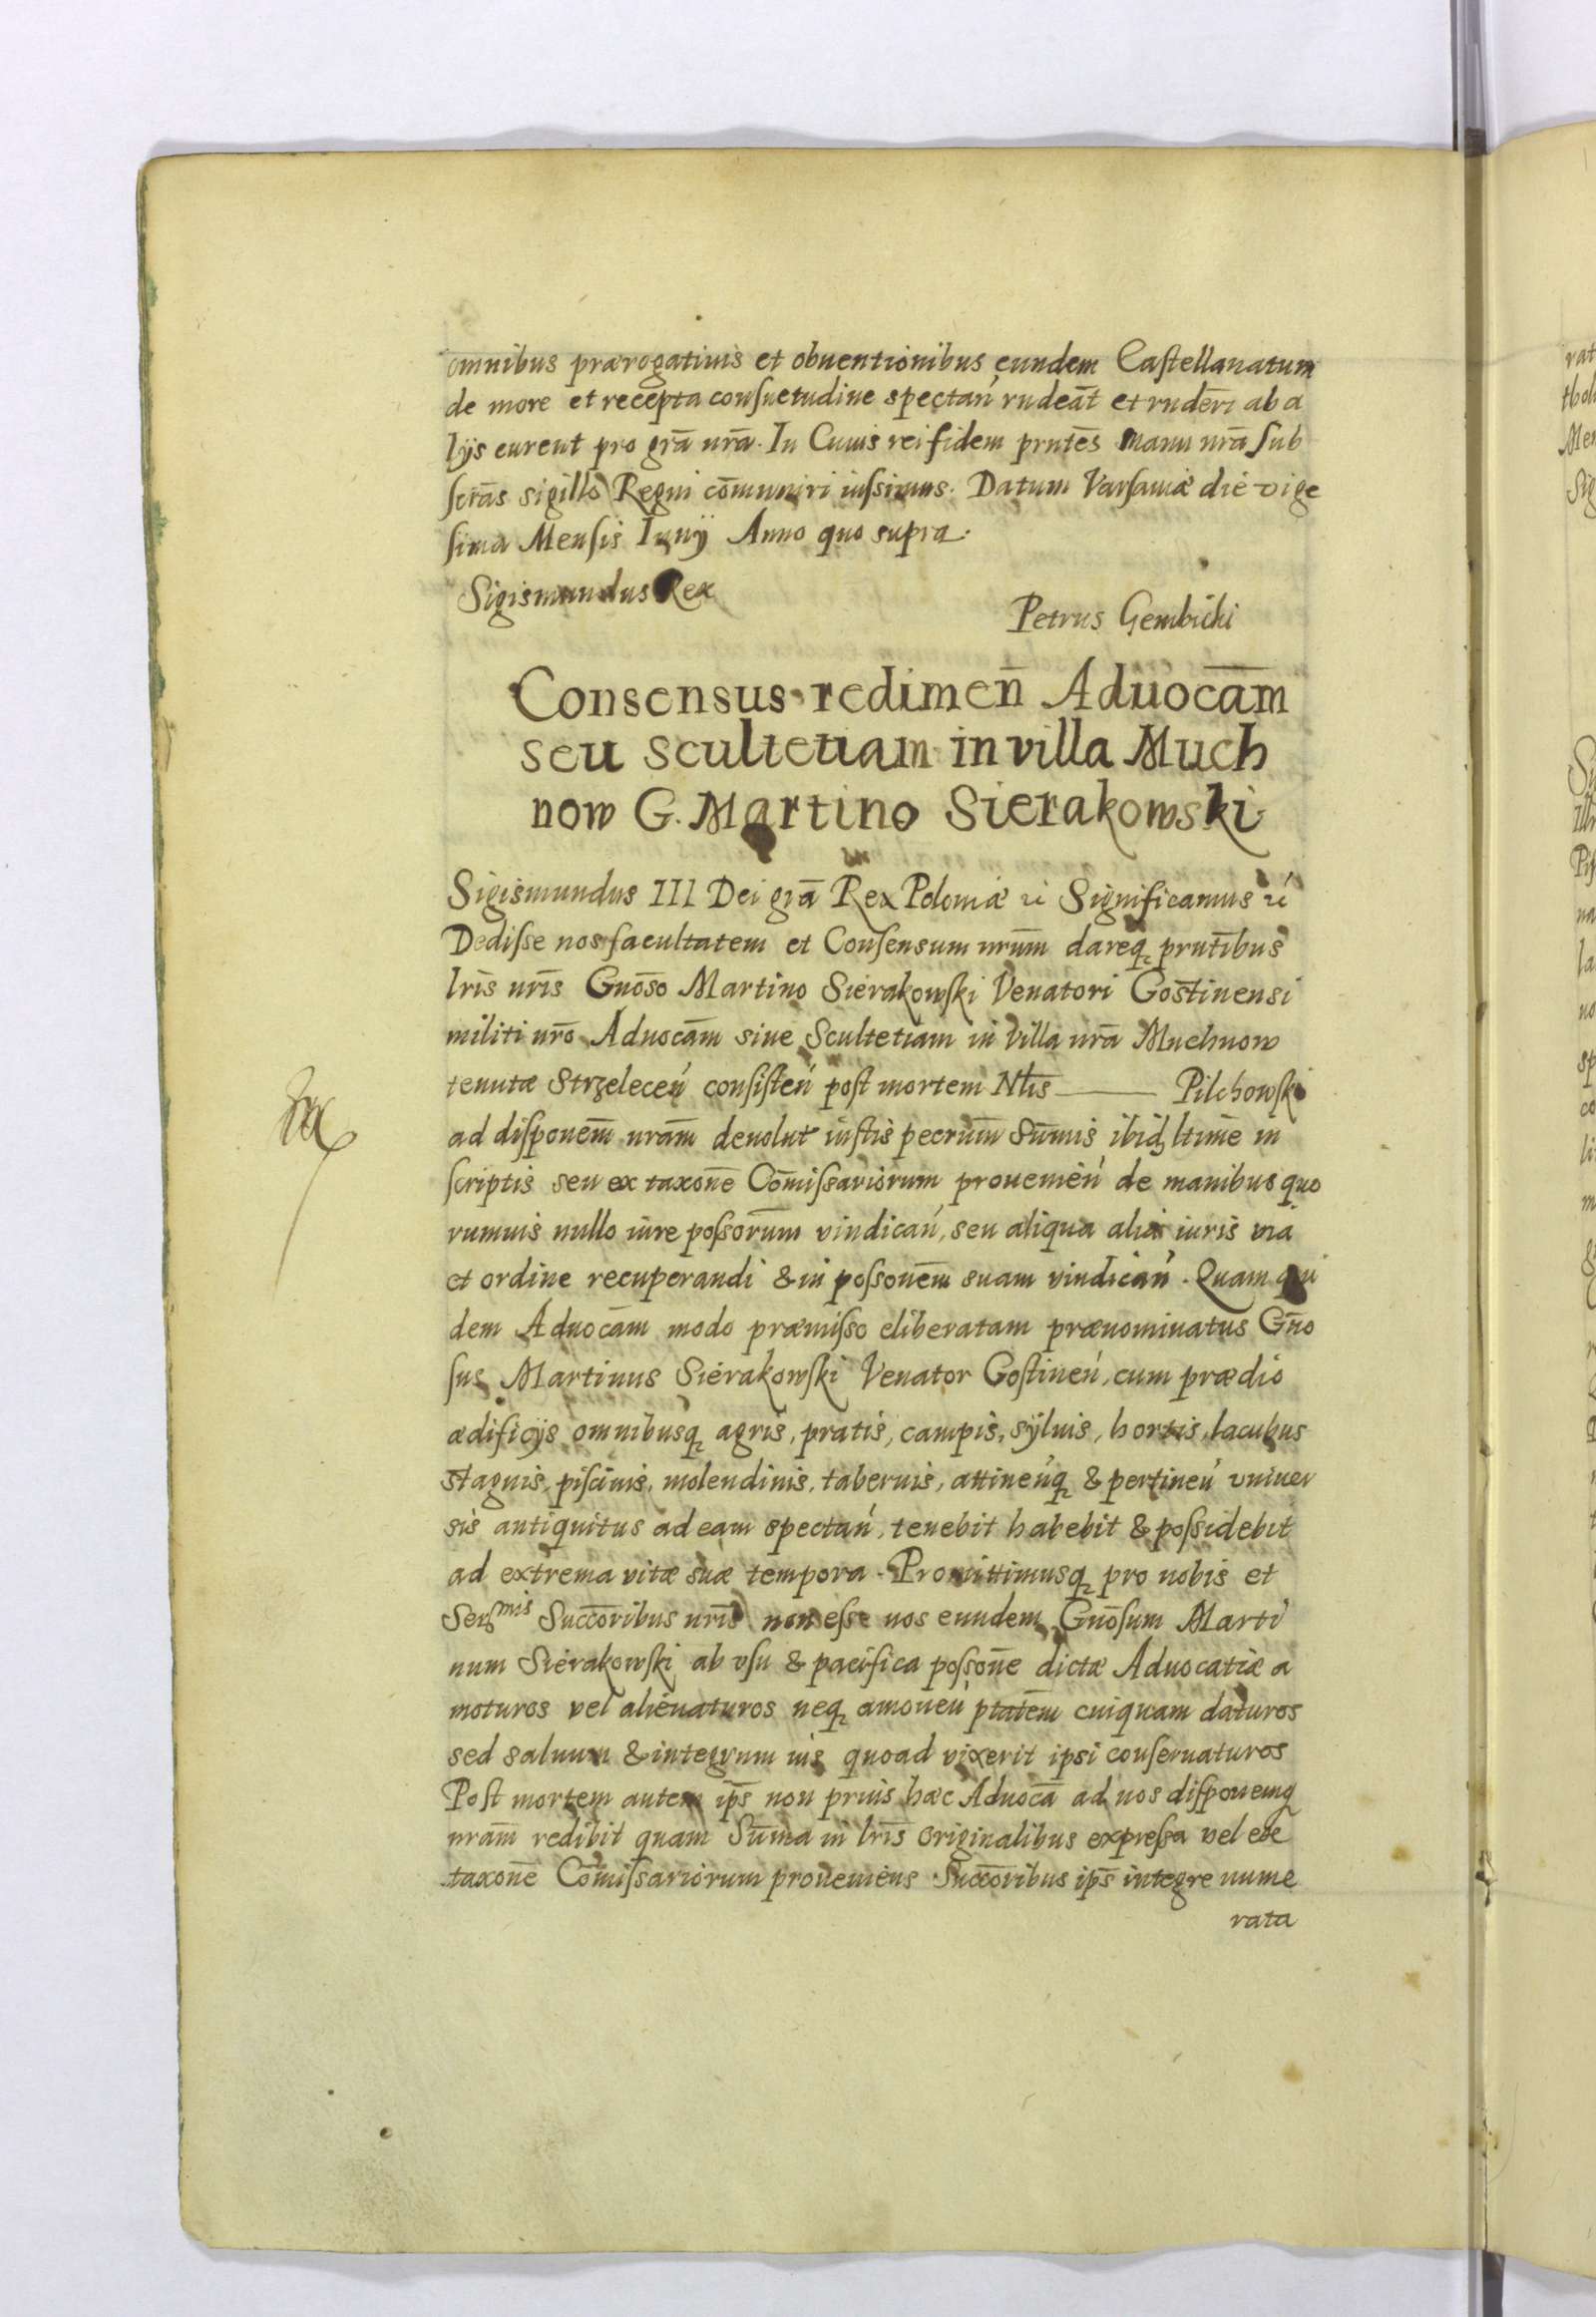 omnibus prærogatiuis et obuentionibus eundem Castellanatum
de more et recepta consuetudine spectań rudeāt et rudēri ab a
lijs curent pro grā nrā. In Cuius rei fidem prntēs manu nrā sub
scrās sigillo Regni cōmuniri iussimus. Datum Varsauiæ die vige
sima Mensis Iunij Anno quo supra.
Sigismundus Rex
Petrus Gembicki
Consensus redimen̄ Aduocām
seu scultetiam in villa Much
now G. Martino Sierakowski
Sigismundus III Dei grā Rex Poloniæ Significamus
Dedisse nos facultatem et Consensum nrūm dareq prntībus
lrīs nrīs Gnōso Martino Sierakowski Venatori Gostinensi
militi nrō Aduocām siue Scultetiam in Villa nrā Muchnow
tenutæ Strzeleceń consisteń post mortem Nlīs ——— Pilchowski
ad disponem̄ nrām deuolut iustis pecrum̄ Sūmis ibid ltime in
scriptis seu ex taxone̅ Cōmissariorum prouenień de manibus quo
rumuis nullo iure possorum̄ vindicań, seu aliqua alia iuris via
et ordine recuperandi & in possonem̄ suam vindicań. Quam qui
dem Aduocām modo præmisso eliberatam prænominatus Gn̄o
sus Martinus Sierakowski Venator Gostineń, cum prædio
ædificijs omnibusq agris, pratis, campis, syluis, hortis, lacubus
stagnis, piscinis, molendinis, tabernis, attineńq & pertineń vniuer
sis antiquitus ad eam spectań, tenebit habebit & possidebit
ad extrema vitæ suæ tempora. Promittimusq pro nobis et
Sermis Succoribus nrīs non esse nos eundem Gnōsum Marti
num Sierakowski ab vsu & pacifica possone̅ dictæ Aduocatiæ a
moturos vel alienaturos neq amoueń ptatēm cuiquam daturos
sed saluum & integrum ius quoad vixerit ipsi conseruaturos
Post mortem autem ips̄ non prius hæc Aduocā ad nos disponemq
nrām redibit quam Sūma in lrīs originalibus expressa vel ex
taxone̅ Cōmissariorum proueniens Succōribus ips̄ integre nume
rata